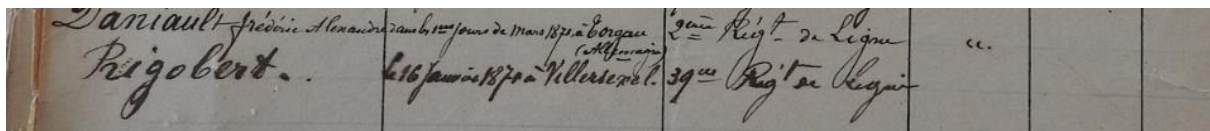 Daniault frédéric Alexandre dans les 1ers jours de Mars 1871 à Torgau (Allemagne) 2ème Régt de Ligne "
Rigobert. le 16 Janvier 1871 à Villersexel. 39me Régt de Ligne